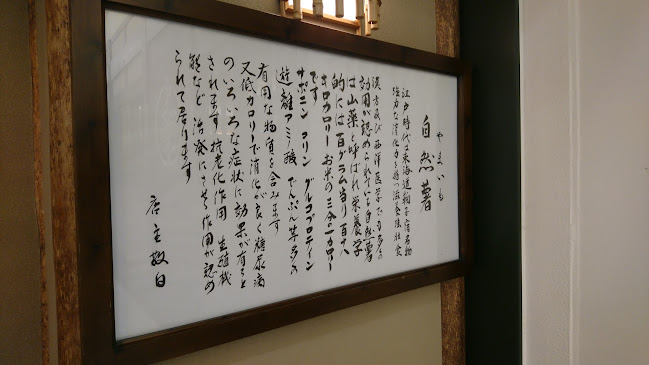 やまいも
自然薯
江戸時代 東海道鞠子宿名物
強力な消化力を持つ滋養強壮食
漢方及び西洋医学でも多くの
効用が認められている自然薯
は山薬と呼ばれ 栄養学
的には 百グラム当り 百十八
キロカロリー お米の三分の一カロリー
です
サポニン コリン グルコプロテイン
遊離アミノ酸 でんぷん
有用な物質を含みます
又低カロリーで消化が良く糖尿病
のいろいろな症状に効果が有ると
されます 抗老化作用 生殖機
能など 活発にさせる作用が認め
られて居ります
店主敬白